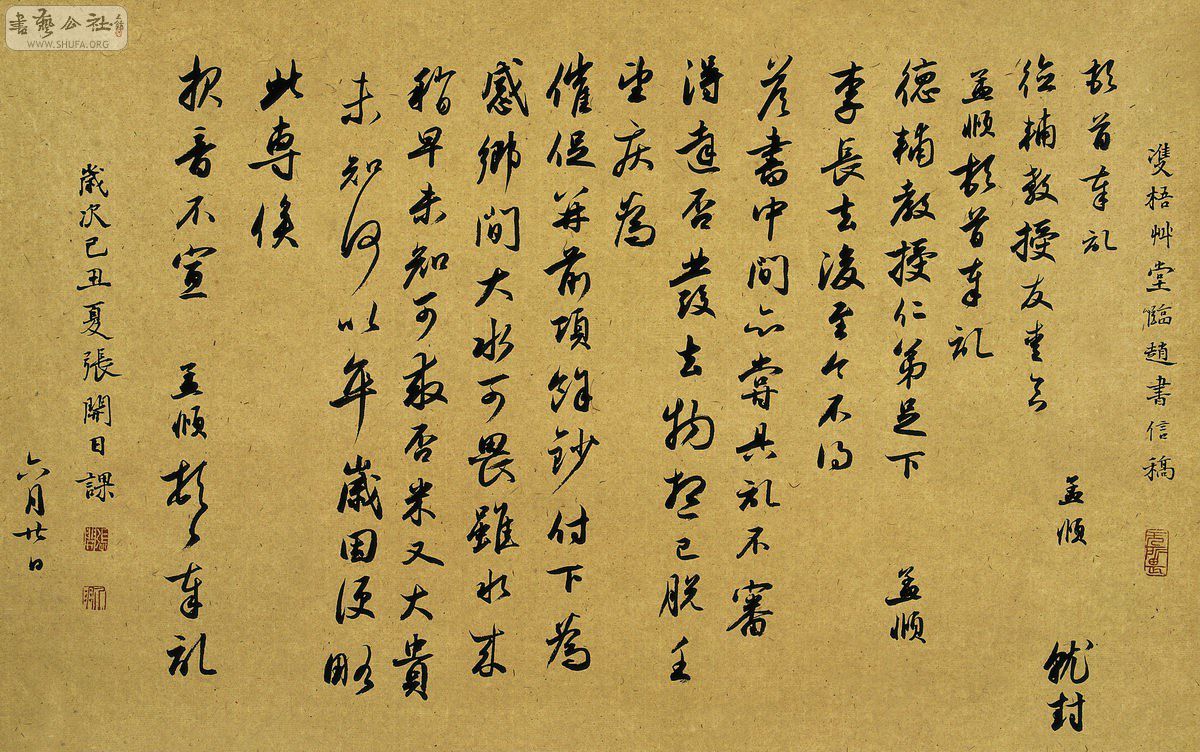 書藝公社
WWW.SHUFA.ORG
雙梧艸堂臨趙書信稿
頓首奉記
德輔教授友愛 孟頫 就封
孟頫頓首奉記
德輔教授仁弟足下 孟頫
李長去後至今不得
答書中間亦嘗具記不審
得達否發去物想已脫手
望疾為
催促并前項餘鈔付下為
感鄉間大水可畏雖水來
稍早未知可救否米又大貴
未知何以卒歲因便略
此專俟
報音不宣 孟頫頓首奉記
六月廿日
歲次己丑夏張開日課